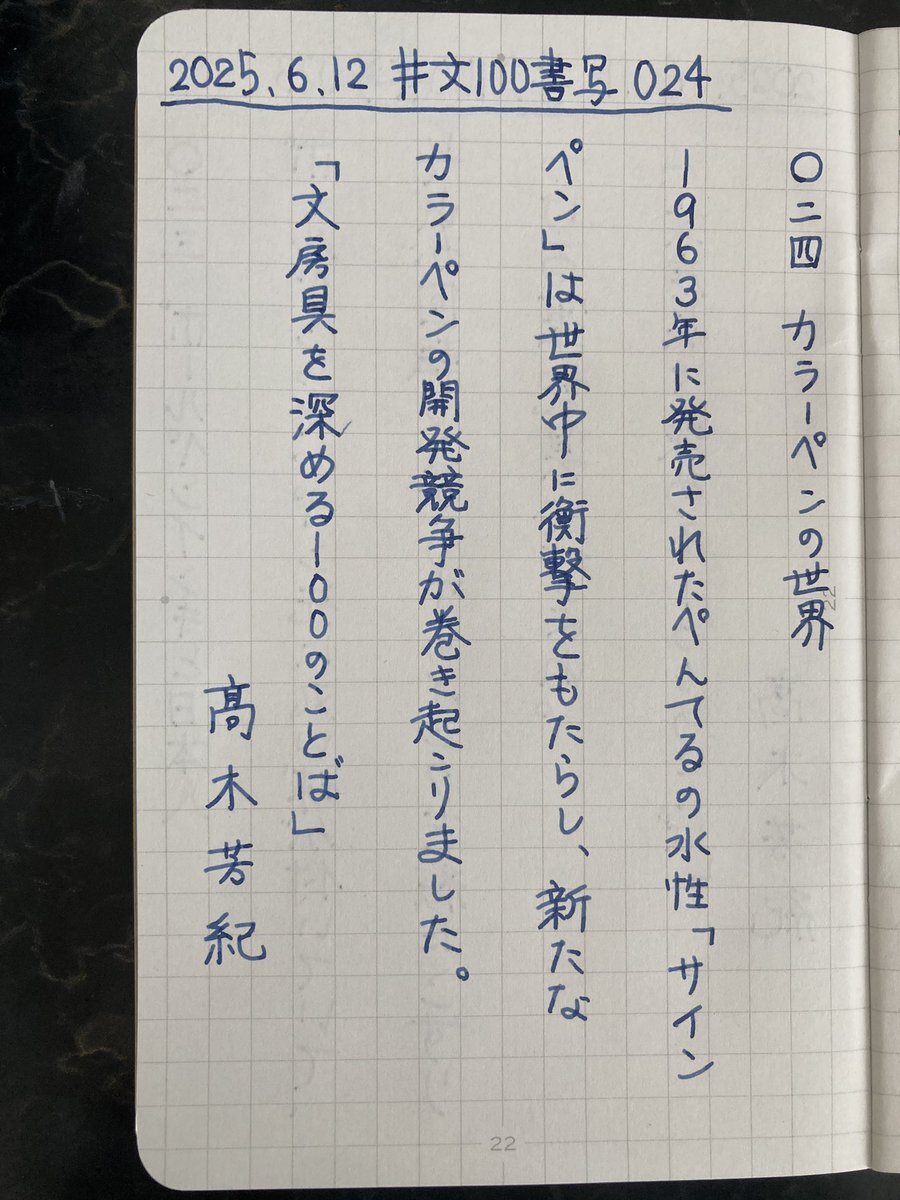 2025.6.12 #文100書写 024
〇二四 カラーペンの世界
1963年に発売されたぺんてるの水性「サイン
ペン」は世界中に衝撃をもたらし、新たな
カラーペンの開発競争が巻き起こりました。
「文房具を深める100のことば」
髙木芳紀
22
22